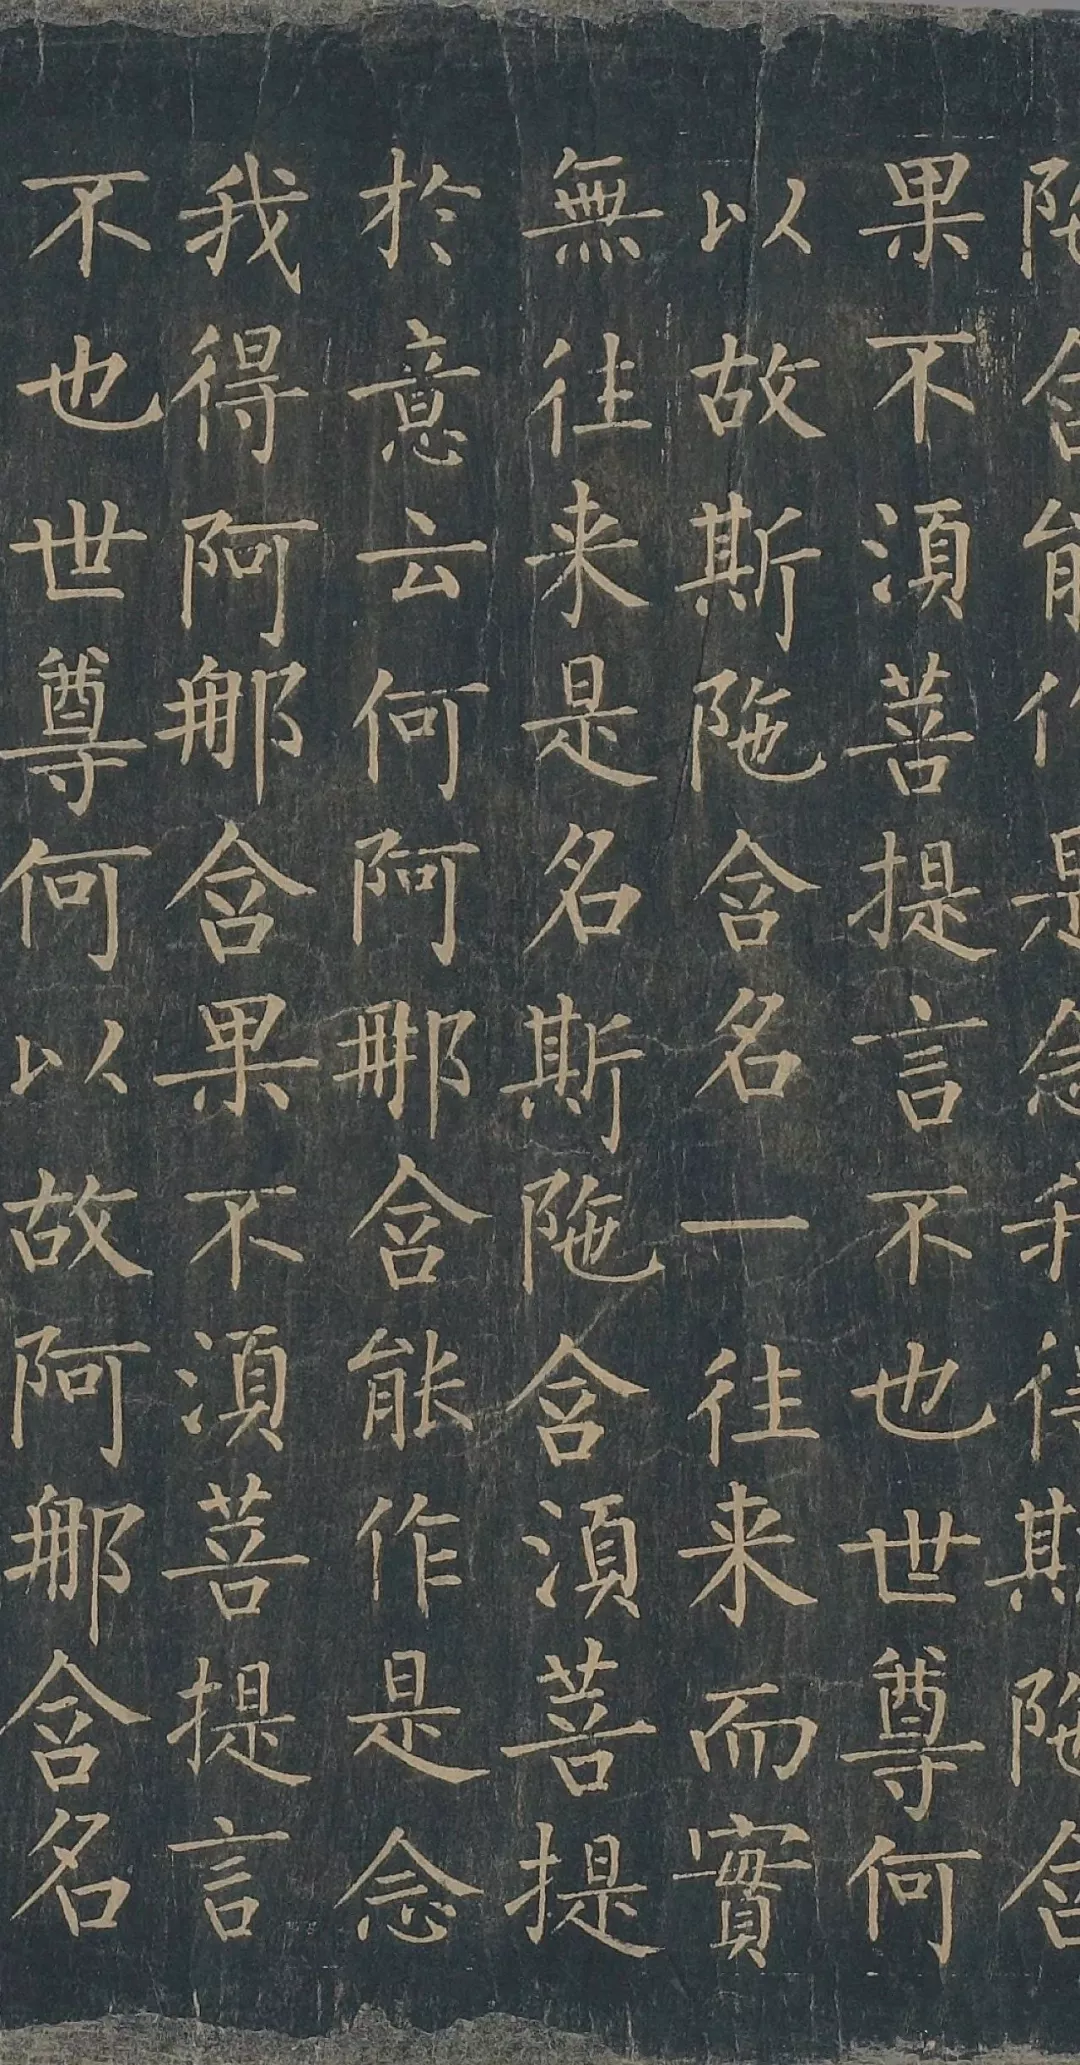 陁含能作是念我得斯陁含
果不湏菩提言不也世尊何
以故斯陁含名一往来而實
無往来是名斯陁含湏菩提
於意云何阿那含能作是念
我得阿那含果不湏菩提言
不也世尊何以故阿那含名